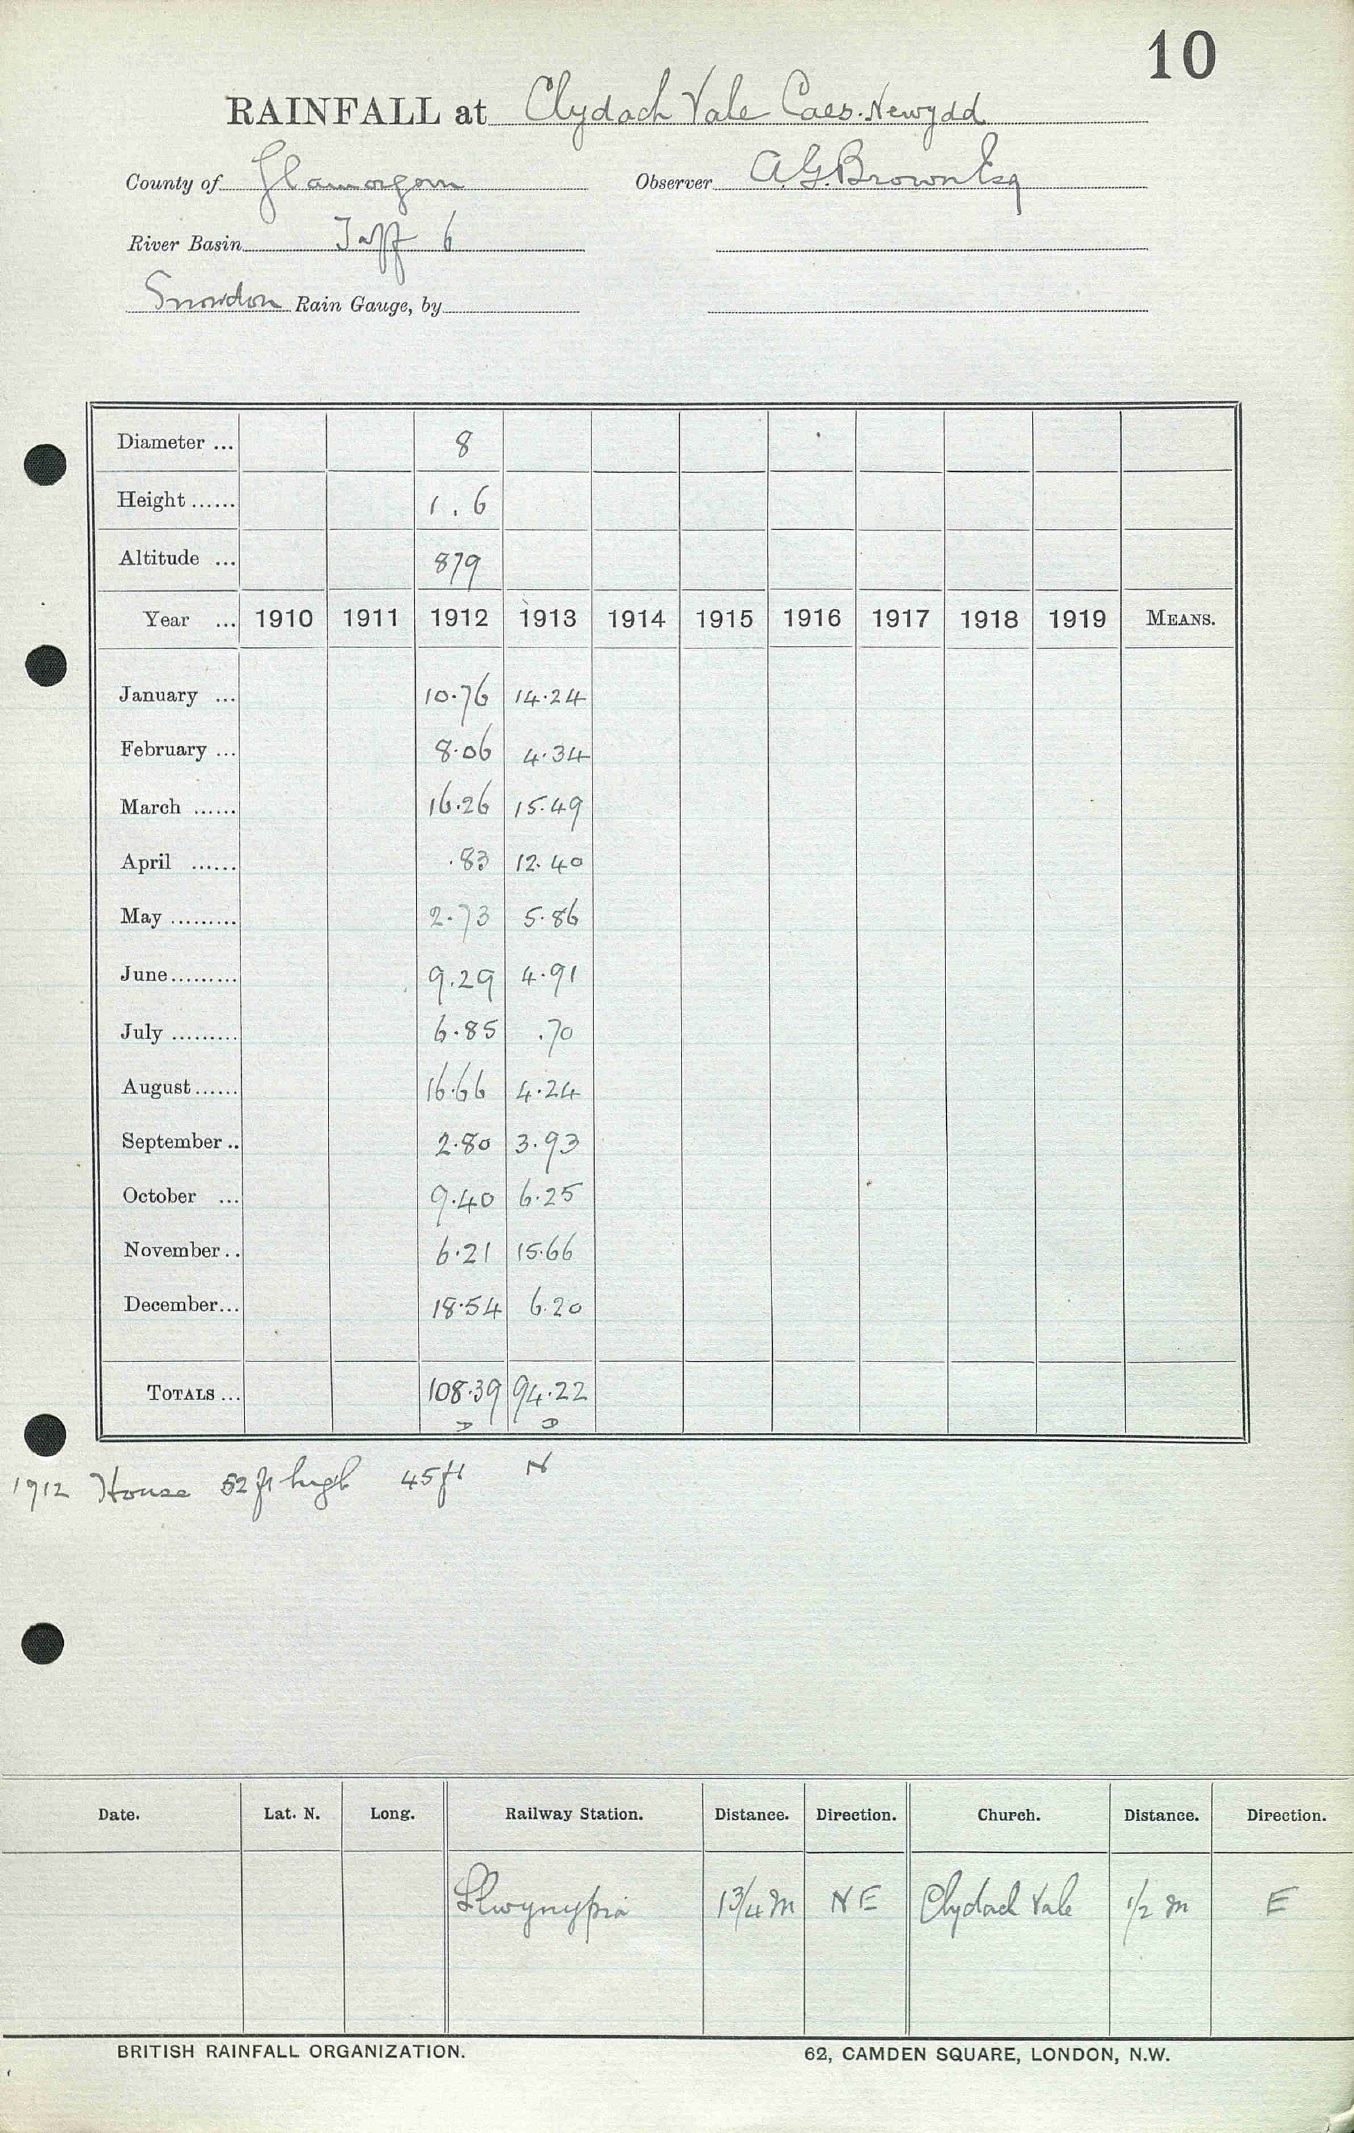 10
RAINFALL at Clydach Vale Caes. Newydd
County of Glamorgan Observer A.G. Brown Esq
River Basin Taff 6
Snowdon Rain Gauge, by
Diameter ... 8
Height ...... 1.6
Altitude ... 879
Year ... 1910 1911 1912 1913 1914 1915 1916 1917 1918 1919 MEANS.
January ... 10.76 14.24
February ... 8.06 4.34
March ...... 16.26 15.49
April ...... .83 12.40
May ......... 2.73 5.86
June ......... 9.29 4.91
July ......... 6.85 .70
August ...... 16.66 4.24
September .. 2.80 3.93
October ... 9.40 6.25
November .. 6.21 15.66
December ... 18.54 6.20
TOTALS ... 108.39 94.22
1912 House 52 ft high 45 ft N
Date. Lat. N. Long. Railway Station. Distance. Direction. Church. Distance. Direction.
Llwynypia 1 3/4 m NE Clydach Vale 1/2 m E
BRITISH RAINFALL ORGANIZATION. 62, CAMDEN SQUARE, LONDON, N.W.